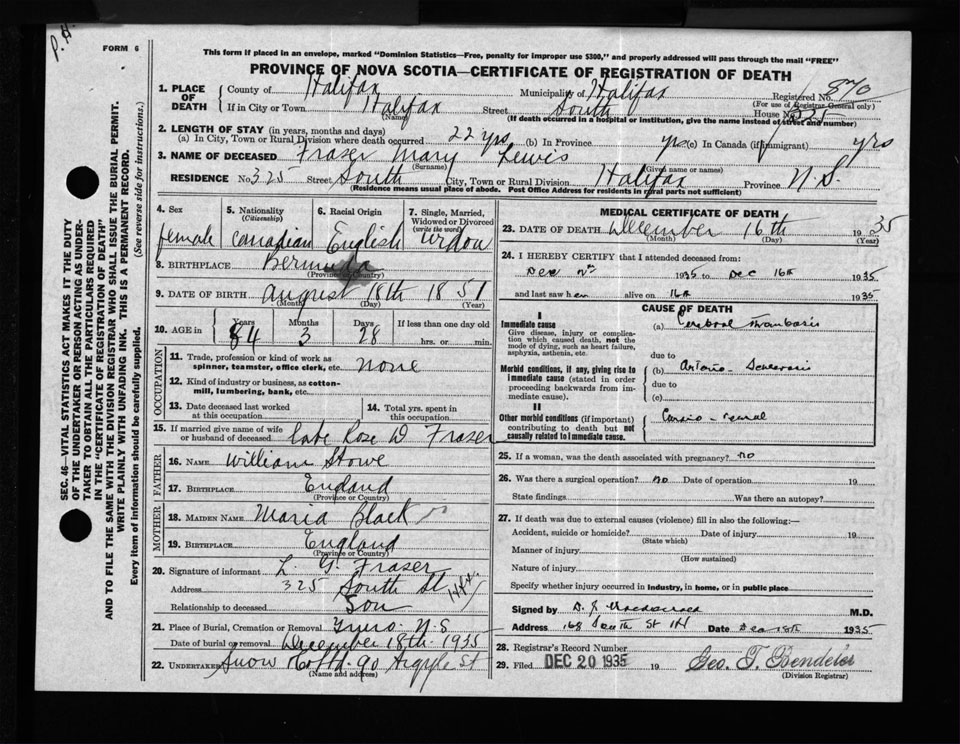 P. H.
FORM 6
This form if placed in an envelope, marked "Dominion Statistics—Free, penalty for improper use $300," and properly addressed will pass through the mail "FREE"
PROVINCE OF NOVA SCOTIA—CERTIFICATE OF REGISTRATION OF DEATH
1. PLACE OF DEATH
County of Halifax Municipality of Halifax Registered No. 870
(For use of Registrar General only)
If in City or Town Halifax Street South House No. 325
(Name) (If death occurred in a hospital or institution, give the name instead of street and number)
2. LENGTH OF STAY (in years, months and days)
(a) In City, Town or Rural Division where death occurred 22 yrs (b) In Province yrs (c) In Canada (if immigrant) yrs
3. NAME OF DECEASED Fraser Mary Lewis
(Surname) (Given name or names)
RESIDENCE No. 325 Street South City, Town or Rural Division Halifax Province N.S.
(Residence means usual place of abode. Post Office Address for residents in rural parts not sufficient)
4. Sex
female
5. Nationality (Citizenship)
Canadian
6. Racial Origin
English
7. Single, Married, Widowed or Divorced (write the word)
Widow
8. BIRTHPLACE Bermuda
(Province or Country)
9. DATE OF BIRTH August 18th 1851
(Month) (Day) (Year)
10. AGE in Years 84 Months 3 Days 28 If less than one day old
hrs. or min.
OCCUPATION
11. Trade, profession or kind of work as spinner, teamster, office clerk, etc. none
12. Kind of industry or business, as cotton-mill, lumbering, bank, etc.
13. Date deceased last worked at this occupation
14. Total yrs. spent in this occupation
15. If married give name of wife or husband of deceased Late Rose D Fraser
FATHER
16. NAME William Stowe
17. BIRTHPLACE England
(Province or Country)
MOTHER
18. MAIDEN NAME Maria Black
19. BIRTHPLACE England
(Province or Country)
20. Signature of informant L. G. Fraser
Address 325 South St Hfx.
Relationship to deceased Son
21. Place of Burial, Cremation or Removal Truro N.S
Date of burial or removal December 18th 1935
22. UNDERTAKER Snow & Co Ltd. 90 Argyle St
(Name and address)
MEDICAL CERTIFICATE OF DEATH
23. DATE OF DEATH December 16th 1935
(Month) (Day) (Year)
24. I HEREBY CERTIFY that I attended deceased from:
Dec 1935 to Dec 16th 1935
and last saw her alive on 16th 1935
CAUSE OF DEATH
I
Immediate cause
Give disease, injury or complication which caused death, not the mode of dying, such as heart failure, asphyxia, asthenia, etc.
(a) Cerebral Thrombosis
due to
Morbid conditions, if any, giving rise to immediate cause (stated in order proceeding backwards from immediate cause).
(b) Arterio-Sclerosis
due to
(c)
II
Other morbid conditions (if important) contributing to death but not causally related to immediate cause.
Cardio-renal
25. If a woman, was the death associated with pregnancy? no
26. Was there a surgical operation? no Date of operation 19
State findings Was there an autopsy?
27. If death was due to external causes (violence) fill in also the following:—
Accident, suicide or homicide? Date of injury 19
(State which)
Manner of injury
(How sustained)
Nature of injury
Specify whether injury occurred in industry, in home, or in public place
Signed by M.D.
Address 168 South St Date Dec 18th 1935
28. Registrar's Record Number
29. Filed DEC 20 1935 19 Geo. T. Bendelier
(Division Registrar)
SEC. 46—VITAL STATISTICS ACT MAKES IT THE DUTY
OF THE UNDERTAKER OR PERSON ACTING AS UNDER-
TAKER TO OBTAIN ALL THE PARTICULARS REQUIRED
IN THE "CERTIFICATE OF REGISTRATION OF DEATH"
AND TO FILE THE SAME WITH THE DIVISION REGISTRAR WHO SHALL ISSUE THE BURIAL PERMIT.
WRITE PLAINLY WITH UNFADING INK. THIS IS A PERMANENT RECORD.
Every item of information should be carefully supplied.
(See reverse side for instructions.)